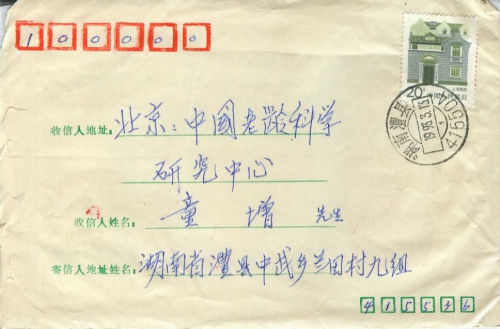 100000
20分 中国人民邮政
上海民居
湖南澧县
1993.3.13
415500
收信人地址：北京：中國老龄科学
研究中心
收信人姓名：童增 先生
寄信人地址姓名：湖南省澧县中武乡兰田村九组
415516